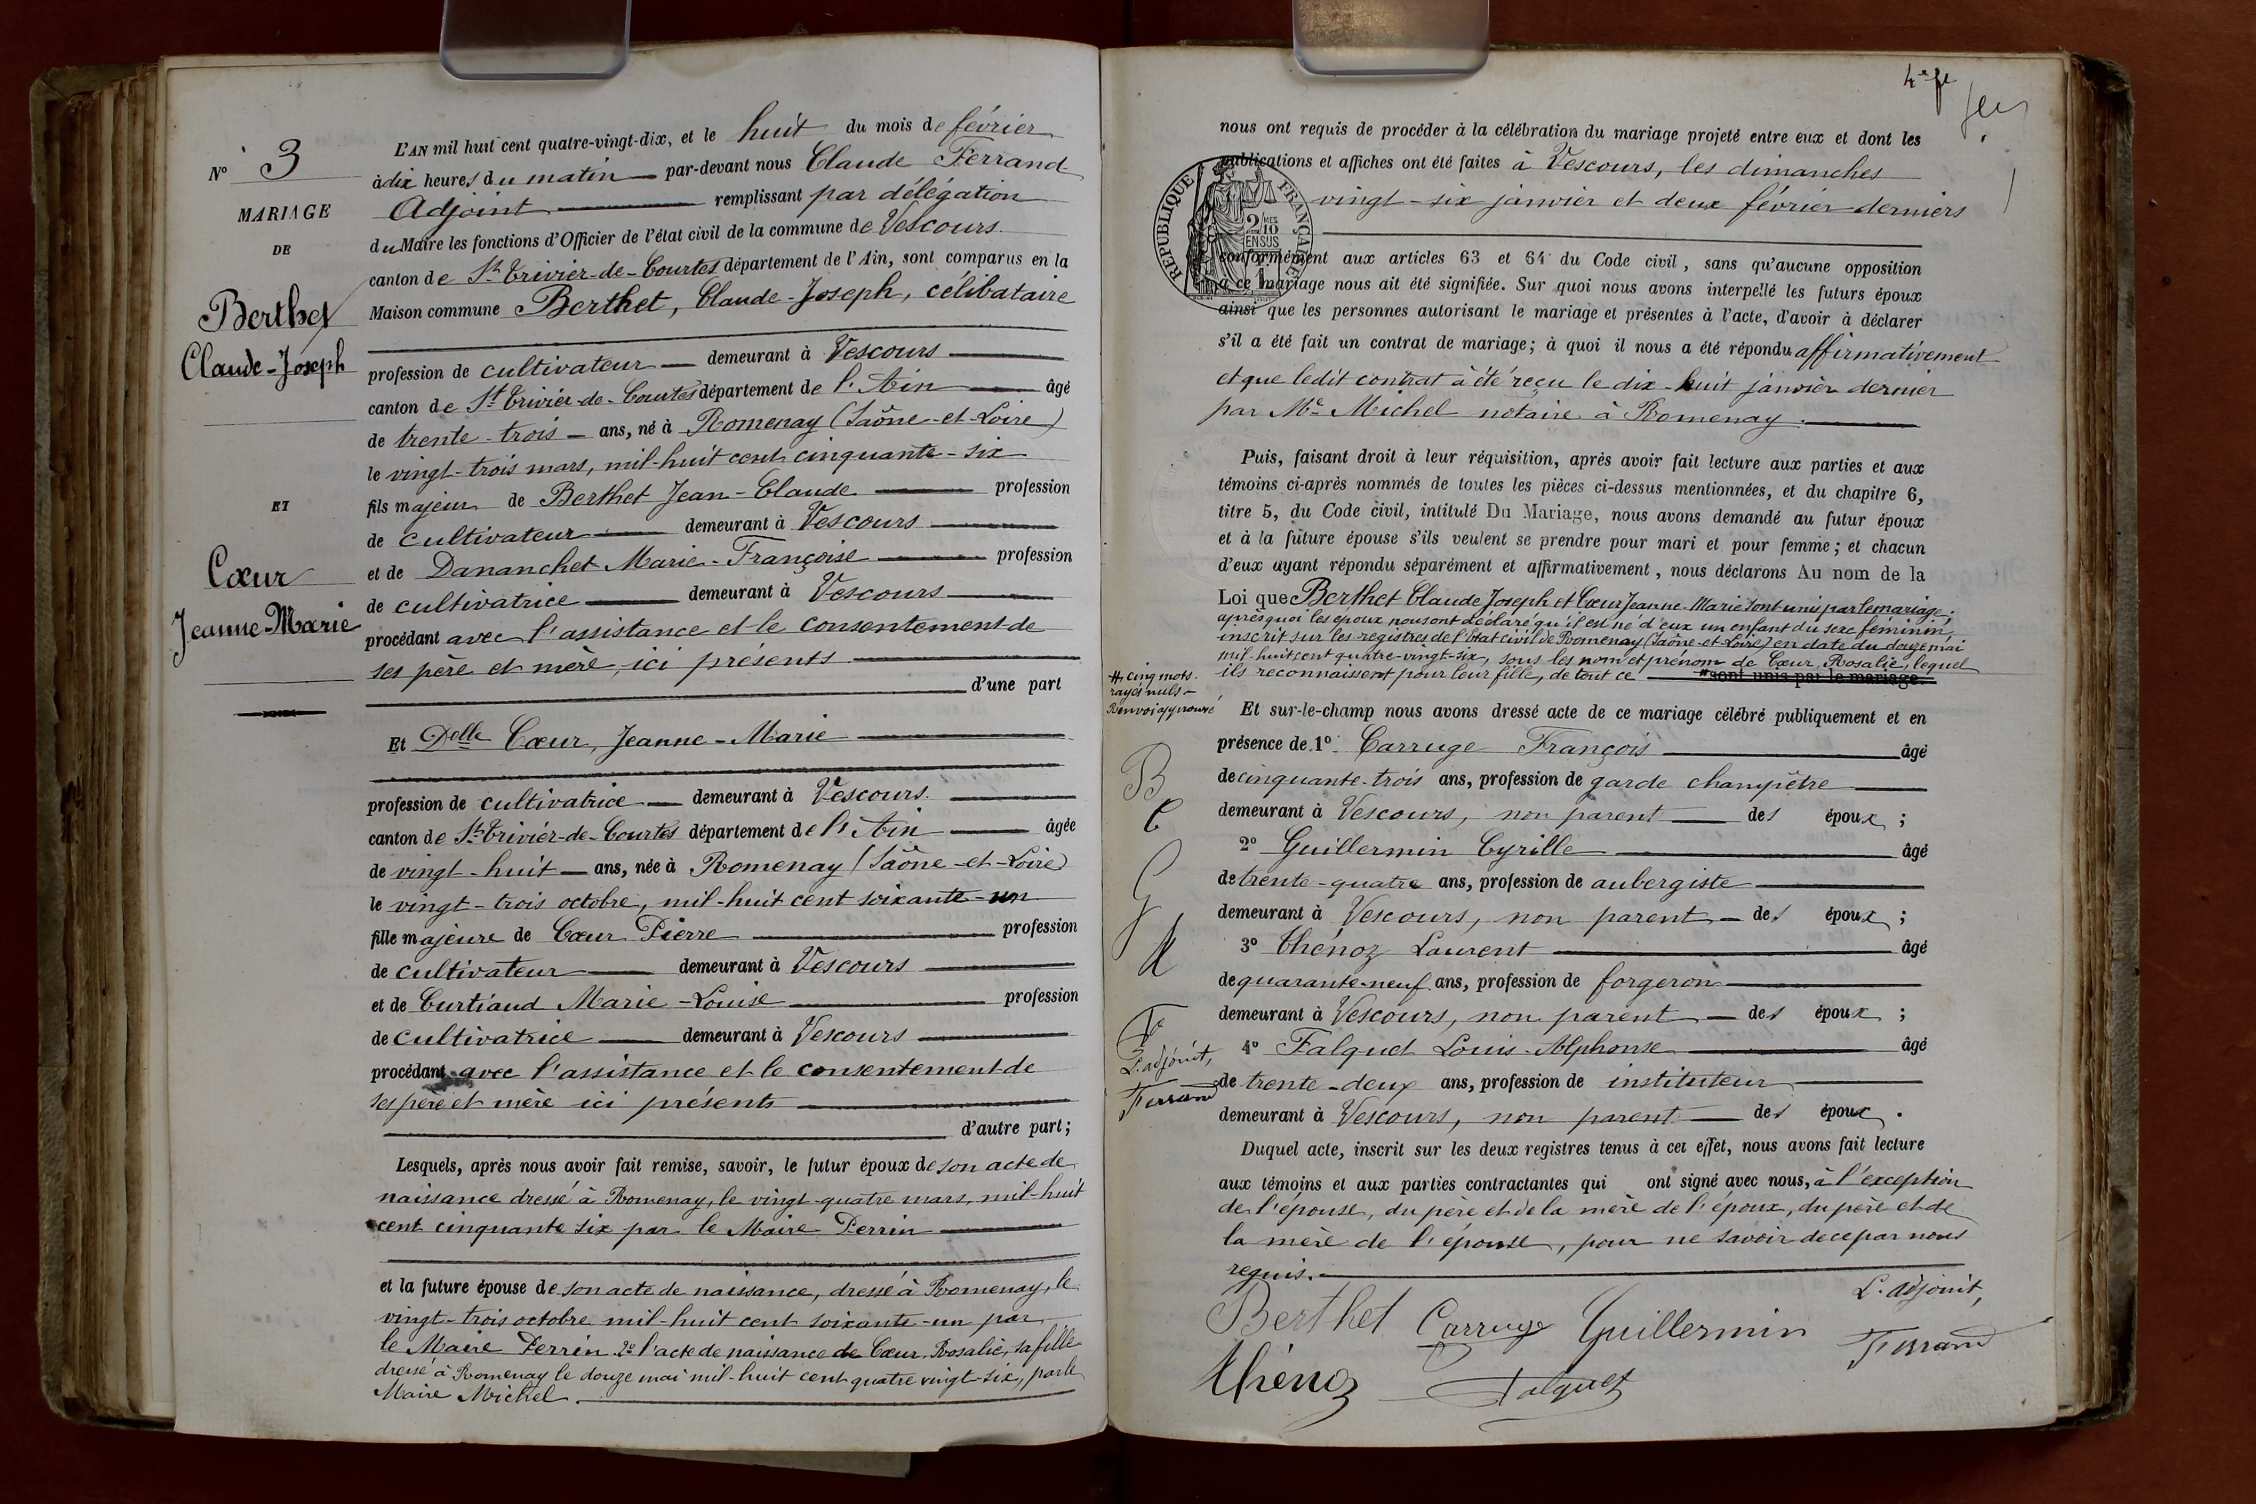 N° 3
MARIAGE
DE
Berthet
Claude-Joseph
ET
Cœur
Jeanne-Marie
L'AN mil huit cent quatre-vingt-dix, et le huit du mois de février
à dix heures du matin par-devant nous Claude Ferrand
Adjoint remplissant par délégation
du Maire les fonctions d'Officier de l'état civil de la commune de Vescours
canton de St Trivier-de-Courtes département de l'Ain, sont comparus en la
Maison commune Berthet, Claude-Joseph, célibataire
profession de cultivateur demeurant à Vescours
canton de St Trivier-de-Courtes département de l'Ain âgé
de trente-trois ans, né à Romenay (Saône-et-Loire)
le vingt-trois mars, mil-huit cent cinquante-six
fils majeur de Berthet Jean-Claude profession
de cultivateur demeurant à Vescours
et de Dananchet Marie-Françoise profession
de cultivatrice demeurant à Vescours
procédant avec l'assistance et le consentement de
ses père et mère, ici présents
d'une part
Et Delle Cœur, Jeanne-Marie
profession de cultivatrice demeurant à Vescours
canton de St Trivier-de-Courtes département de l'Ain âgée
de vingt-huit ans, née à Romenay (Saône-et-Loire)
le vingt-trois octobre, mil-huit cent soixante-un
fille majeure de Cœur Pierre profession
de cultivateur demeurant à Vescours
et de Curtiaud Marie-Louise profession
de cultivatrice demeurant à Vescours
procédant avec l'assistance et le consentement de
ses père et mère ici présents
d'autre part;
Lesquels, après nous avoir fait remise, savoir, le futur époux de son acte de
naissance dressé à Romenay, le vingt-quatre mars, mil-huit
cent cinquante six par le Maire Perrin
et la future épouse de son acte de naissance, dressé à Romenay, le
vingt-trois octobre mil-huit cent soixante-un par
le Maire Perrin 2° l'acte de naissance de Cœur Rosalie, sa fille
dressé à Romenay le douze mai mil-huit cent quatre vingt-six, par le
Maire Michel.
4e f
nous ont requis de procéder à la célébration du mariage projeté entre eux et dont les
publications et affiches ont été faites à Vescours, les dimanches
vingt-six janvier et deux février derniers
RÉPUBLIQUE FRANÇAISE
2/10 EN SUS
conformément aux articles 63 et 64 du Code civil, sans qu'aucune opposition
à ce mariage nous ait été signifiée. Sur quoi nous avons interpellé les futurs époux
ainsi que les personnes autorisant le mariage et présentes à l'acte, d'avoir à déclarer
s'il a été fait un contrat de mariage; à quoi il nous a été répondu affirmativement
et que ledit contrat a été reçu le dix-huit janvier dernier
par Me Michel notaire à Romenay.
Puis, faisant droit à leur réquisition, après avoir fait lecture aux parties et aux
témoins ci-après nommés de toutes les pièces ci-dessus mentionnées, et du chapitre 6,
titre 5, du Code civil, intitulé Du Mariage, nous avons demandé au futur époux
et à la future épouse s'ils veulent se prendre pour mari et pour femme; et chacun
d'eux ayant répondu séparément et affirmativement, nous déclarons Au nom de la
Loi que Berthet Claude Joseph et Cœur Jeanne-Marie sont unis par le mariage;
après quoi les époux nous ont déclaré qu'il est né d'eux un enfant du sexe féminin,
inscrit sur les registres de l'Etat civil de Romenay (Saône-et-Loire) en date du douze mai
mil-huit cent quatre-vingt-six, sous les nom et prénom de Cœur Rosalie, lequel
ils reconnaissent pour leur fille, de tout ce # sont unis par le mariage.
# cinq mots
rayés nuls
Renvoi approuvé
Et sur-le-champ nous avons dressé acte de ce mariage célébré publiquement et en
présence de 1° Carruge François âgé
de cinquante-trois ans, profession de garde champêtre
demeurant à Vescours, non parent des époux;
2° Guillermin Cyrille âgé
de trente-quatre ans, profession de aubergiste
demeurant à Vescours, non parent des époux;
3° Thénoz Laurent âgé
de quarante-neuf ans, profession de forgeron
demeurant à Vescours, non parent des époux;
4° Falquet Louis-Alphonse âgé
de trente-deux ans, profession de instituteur
demeurant à Vescours, non parent des époux.
B
C
G
F
L'adjoint,
Ferrand
Duquel acte, inscrit sur les deux registres tenus à cet effet, nous avons fait lecture
aux témoins et aux parties contractantes qui ont signé avec nous, à l'exception
de l'épouse, du père et de la mère de l'époux, du père et de
la mère de l'épouse, pour ne savoir de ce par nous
requis.
L'adjoint,
Berthet Carruge Guillermin Ferrand
Thénoz Falquet